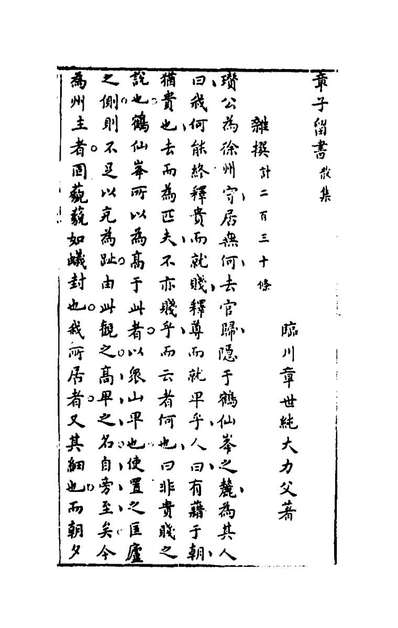 章子留書 散集
臨川章世純大力父著
雜撰 計二百三十條
瓚公為徐州守居無何去官歸隐于鶴仙峯之麓為其人
曰我何能終釋貴而就賤釋尊而就卑乎人曰有藉于朝
猶貴也去而為匹夫不亦賤乎而云者何也曰非貴賤之
說也鶴仙峯所以為髙于此者以衆山卑也使置之匡廬
之側則不足以充為趾由此觀之髙卑之名自旁至矣今
為州主者固藐藐如蟻封也我所居者又其細也而朝夕